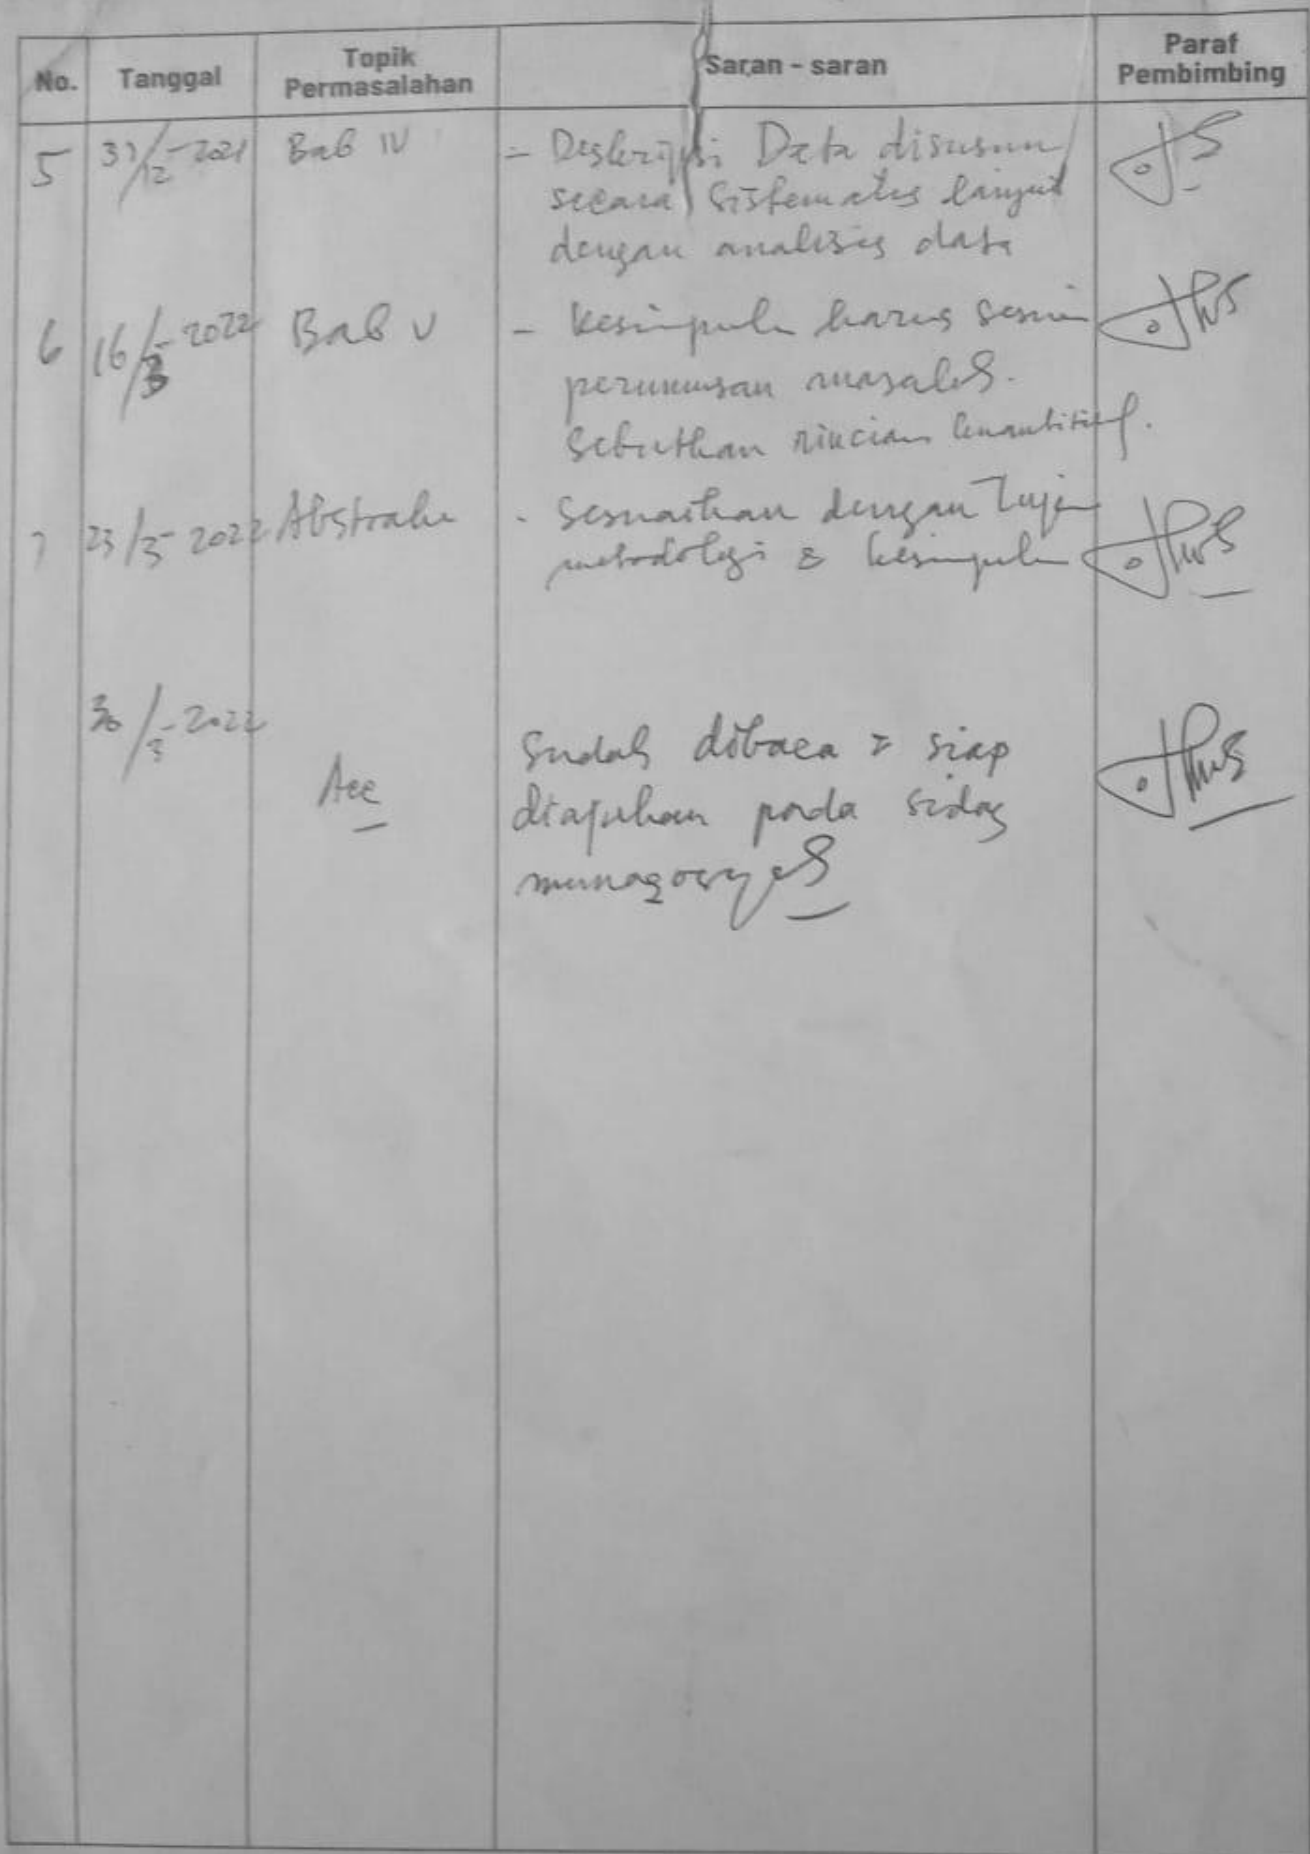 No. Tanggal Topik Permasalahan Saran - saran Paraf Pembimbing
5 31/12-2021 Bab IV - Deskripsi Data disusun
secara sistematis lanjut
dengan analisis data
6 16/3-2022 Bab V - Kesimpulan harus sesuai
perumusan masalah.
Sebutkan rincian kuantitatif.
7 23/3-2022 Abstrak - Sesuaikan dengan Tujuan
metodologi & kesimpulan
30/3-2022
Acc Sudah dibaca & siap
diajukan pada sidang
munaqosyah